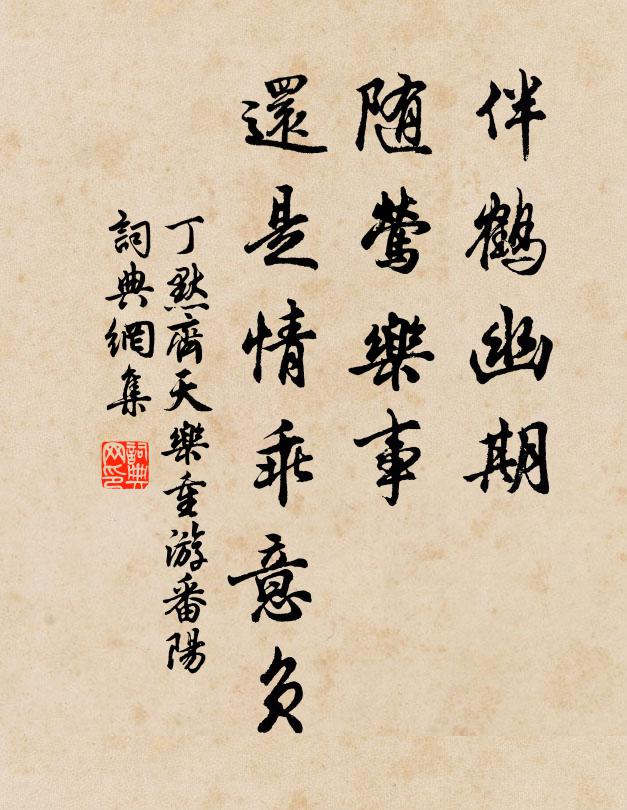 伴鹤幽期
随莺樂事
還是情乖意负
丁默齊天樂重游番陽
詞典網集
詞典网印